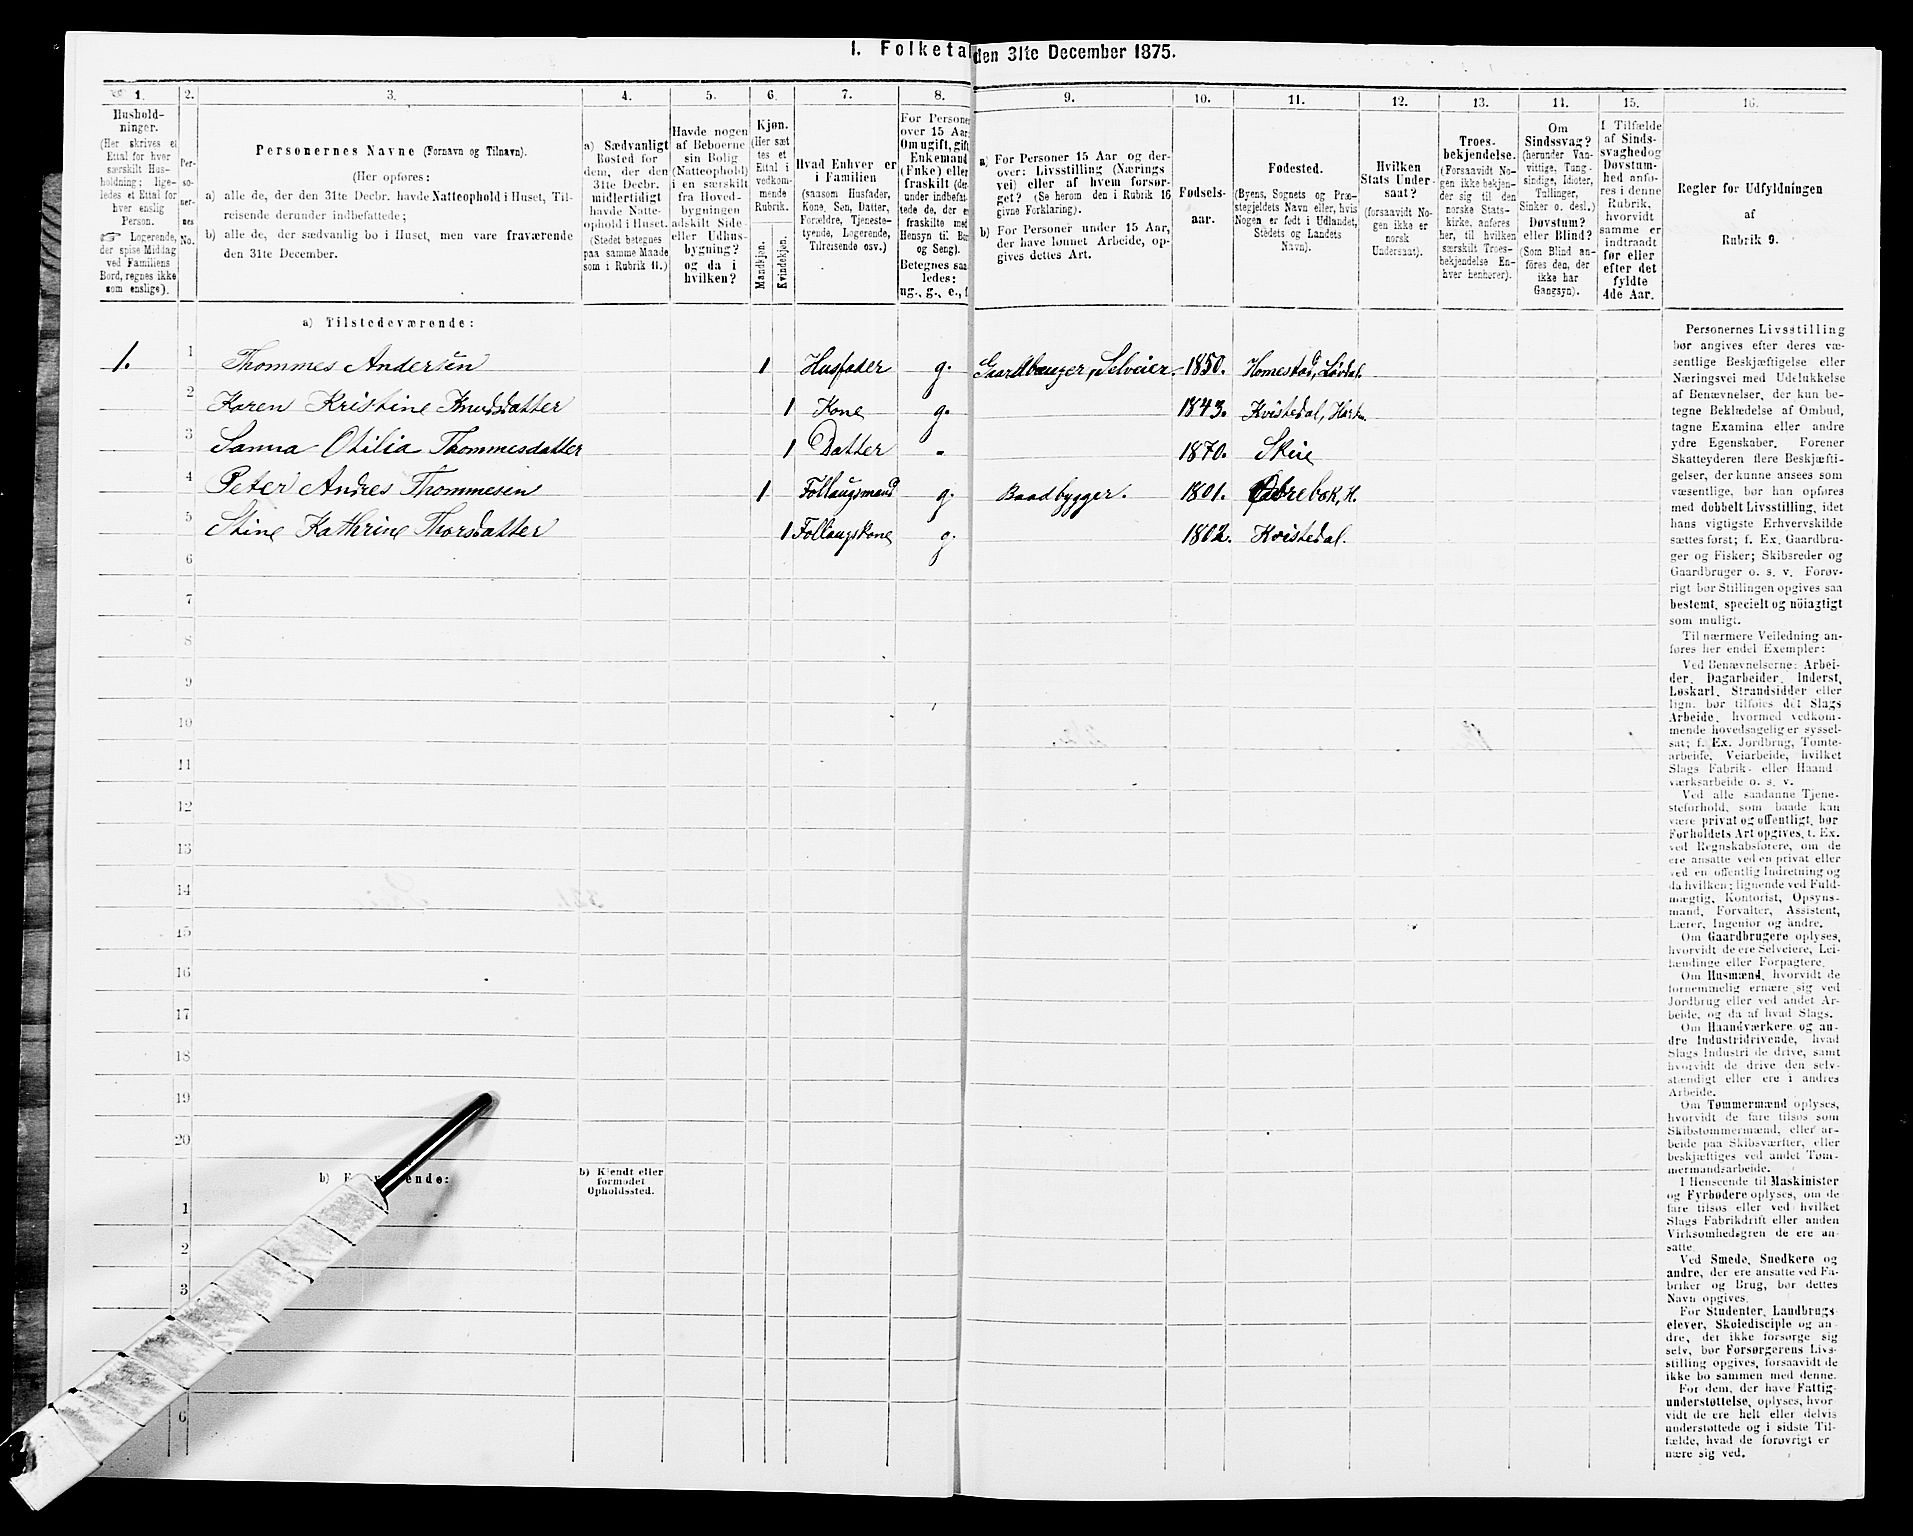 I. Folketal den 31te December 1875.
1. 2. 3. 4. 5. 6. 7. 8. 9. 10. 11. 12. 13. 14. 15. 16.
Hushold-
ninger.
(Her skrives et
Ettal for hver
særskilt Hus-
holdning; lige-
ledes et Ettal for
hver enslig
Person.
☞ Logerende,
der spise Middag
ved Familiens
Bord, regnes ikke
som enslige).
Per-
so-
ner-
nes
No.
Personernes Navne (Fornavn og Tilnavn).
(Her opføres:
a) alle de, der den 31te Decbr. havde Natteophold i Huset, Til-
reisende derunder indbefattede;
b) alle de, der sædvanlig bo i Huset, men vare fraværende
den 31te December.
a) Sædvanligt
Bosted for
dem, der den
31te Decbr.
midlertidigt
havde Natte-
ophold i Huset.
(Stedet betegnes
paa samme Maade
som i Rubrik 11.)
Havde nogen
af Beboerne
sin Bolig
(Natteophold)
i en særskilt
fra Hoved-
bygningen
adskilt Side-
eller Udhus-
bygning?
og da i
hvilken?
Kjøn.
(Her sæt
tes et
Ettal i
vedkom-
mende
Rubrik.
Mandkjøn.
Kvindekjøn.
Hvad Enhver er
i Familien
(saasom Husfader,
Kone, Søn, Datter,
Forældre, Tjeneste-
tyende, Logerende,
Tilreisende osv.)
For Persone
over 15 Aar:
Om ugift, gift
Enkemand
(Enke) eller
fraskilt (der
under indbefat-
tede de, der e
fraskilte med
Hensyn til Bo
og Seng).
Betegnes saa
ledes:
ug., g., e., f
a) For Personer 15 Aar og der-
over: Livsstilling (Nærings
vei) eller af hvem forsør-
get? (Se herom den i Rubrik 16
givne Forklaring).
b) For Personer under 15 Aar,
der have lønnet Arbeide, op-
gives dettes Art.
Fødsels-
aar.
Fødested.
(Byens, Sognets og Præ-
stegjeldets Navn eller, hvis
Nogen er født i Udlandet,
Stedets og Landets
Navn).
Hvilken
Stats Under-
saat?
(forsaavidt No-
gen ikke er
norsk
Undersaat).
Troes-
bekjendelse.
(Forsaavidt No-
gen ikke bekjen-
der sig til den
norske Stats-
kirke, anføres
her, til hvilken
særskilt Troes-
bekjendelse En-
hver henhører).
Om
Sindssvag?
(herunder Van-
vittige, Tung-
sindige, Idioter,
Tullinger,
Sinker o. desl.)
Døvstum?
eller Blind?
(Som Blind an-
føres den, der
ikke har
Gangsyn).
I Tilfælde
af Sinds-
svaghed og
Døvstum-
hed anfø-
res i denne
Rubrik,
hvorvidt
samme er
indtraadt
før eller
efter det
fyldte
4de Aar.
Regler for Udfyldningen
af
Rubrik 9.
a) Tilstedeværende:
1. 1 Thommes Andersen 1 Husfader g. Gaardbruger, Selveier. 1850. Homestad, Løvdal.
2 Karen Kristine Knudsdatter 1 Kone g. 1843. Kvistedal,
3 Sanna Otilia Thommesdatter 1 Datter " 1870. Skeie
4 Peter Andres Thommesen 1 Follaugsmand g. Baadbygger. 1801.
5 Stine Kathrine Thorsdatter 1 Follaugskone g. 1802. Kvistedal.
6
7
8
9
10
11
12
13
14
15
16
17
18
19
20
b) F
ende:
b) Kjendt eller
formodet
Opholdssted.
1
2
3
6
Personernes Livsstilling
bør angives efter deres væ-
sentlige Beskjæftigelse eller
Næringsvei med Udelukkelse
af Benævnelser, der kun be-
tegne Beklædelse af Ombud,
tagne Examina eller andre
ydre Egenskaber. Forener
Skatteyderen flere Beskjæfti-
gelser, der kunne ansees som
væsentlige, bør han opføres
med dobbelt Livsstilling, idet
hans vigtigste Erhvervskilde
sættes først; f. Ex. Gaardbru-
ger og Fisker; Skibsreder og
Gaardbruger o. s. v. Forøv-
rigt bør Stillingen opgives saa
bestemt, specielt og nöiagtigt
som muligt.
Til nærmere Veiledning an-
føres her endel Exempler:
Ved Benævnelserne: Arbei-
der, Dagarbeider, Inderst,
Løskarl, Strandsidder eller
lign. bør tilføies det Slags
Arbeide, hvormed vedkom-
mende hovedsagelig er syssel-
sat; f. Ex. Jordbrug, Tomte-
arbeide, Veiarbeide, hvilket
Slags Fabrik- eller Haand-
værksarbeide o. s. v.
Ved alle saadanne Tjene-
steforhold, som baade kan
være privat og offentligt, bør
Forholdets Art opgives, t. Ex.
ved Regnskabsførere, om de
ere ansatte ved en privat eller
ved en offentlig Indretning og
da hvilken; lignende ved Fuld-
mægtig, Kontorist, Opsyns-
mand, Forvalter, Assistent,
Lærer, Ingeniør og andre.
Om Gaardbrugere oplyses,
hvorvidt de ere Selveiere, Lei-
lændinge eller Forpagtere.
Om Husmænd, hvorvidt de
fornemmelig ernære sig ved
Jordbrug eller ved andet Ar-
beide, og da af hvad Slags.
Om Haandværkere og an-
dre Industridrivende, hvad
Slags Industri de drive, samt
hvorvidt de drive den selv-
stændigt eller ere i andres
Arbeide.
Om Tømmermænd oplyses,
hvorvidt de fare tilsøs som
Skibstømmermænd, eller ar-
beide paa Skibsværfter, eller
beskjæftiges ved andet Tøm-
mermandsarbeide.
I Henseende til Maskinister
og Fyrbødere oplyses, om de
fare tilsøs eller ved hvilket
Slags Fabrikdrift eller anden
Virksomhedsgren de ere an-
satte.
Ved Smede, Snedkere og
andre, der ere ansatte ved Fa-
briker og Brug, bør dettes
Navn opgives.
For Studenter, Landbrugs-
elever, Skoledisciple og an-
dre, der ikke forsørge sig
selv, bør Forsørgerens Livs-
stilling opgives, forsaavidt de
ikke bo sammen med denne.
For dem, der have Fattig-
understøttelse, oplyses, hvor-
vidt de ere helt eller delvis
understøttede og i sidste Til-
fælde, hvad de forøvrigt er
nære sig ved.